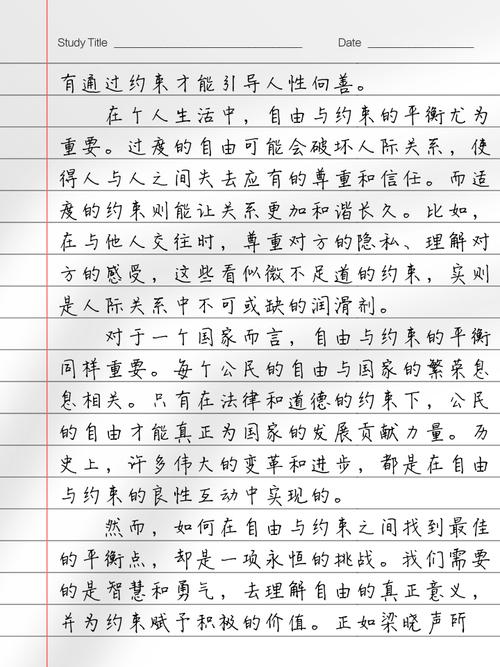 Study Title
Date
有通过约束才能引导人性向善。
在个人生活中，自由与约束的平衡尤为
重要。过度的自由可能会破坏人际关系，使
得人与人之间失去应有的尊重和信任。而适
度的约束则能让关系更加和谐长久。比如，
在与他人交往时，尊重对方的隐私、理解对
方的感受，这些看似微不足道的约束，实则
是人际关系中不可或缺的润滑剂。
对于一个国家而言，自由与约束的平衡
同样重要。每个公民的自由与国家的繁荣息
息相关。只有在法律和道德的约束下，公民
的自由才能真正为国家的发展贡献力量。历
史上，许多伟大的变革和进步，都是在自由
与约束的良性互动中实现的。
然而，如何在自由与约束之间找到最佳
的平衡点，却是一项永恒的挑战。我们需要
的是智慧和勇气，去理解自由的真正意义，
并为约束赋予积极的价值。正如梁晓声所